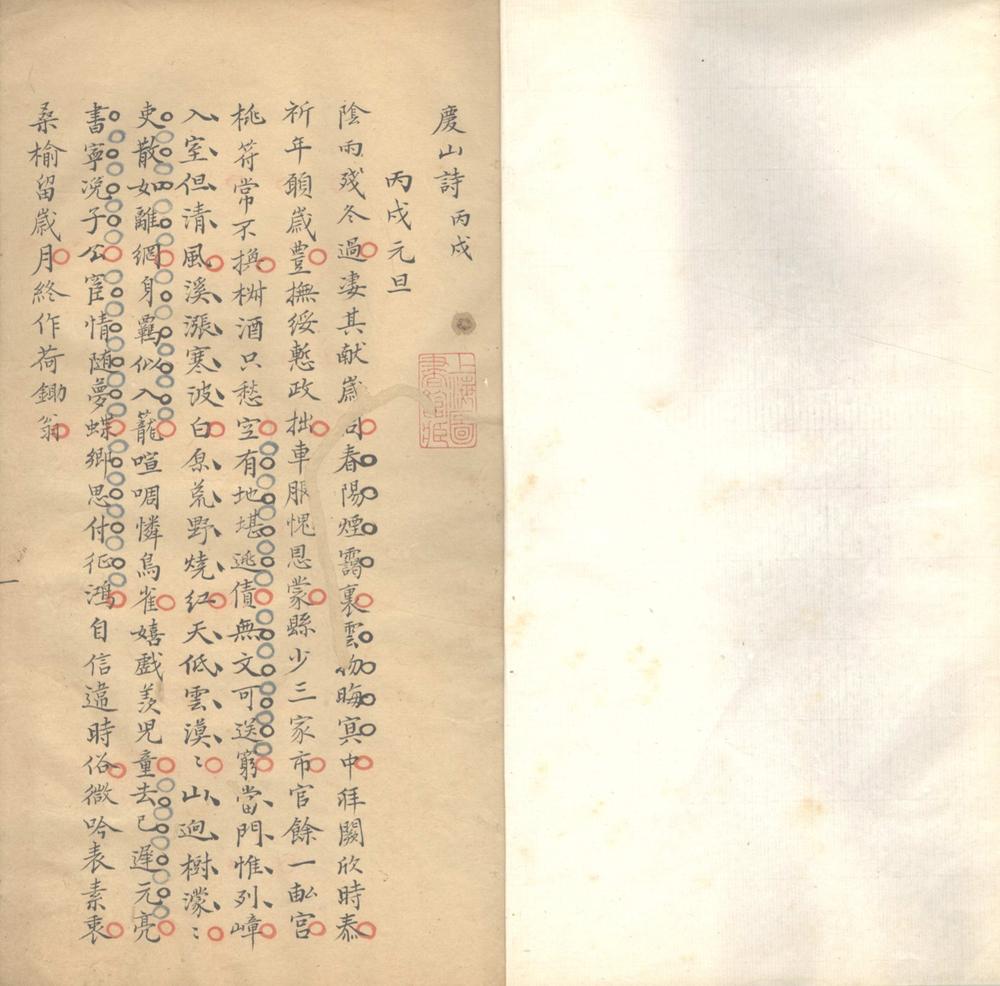 慶山詩 丙戌
丙戌元旦
陰雨殘冬過淒其献歲同春陽煙靄裏雲物晦㝠中拜闕欣時泰
祈年願歲豐撫綏慙政拙車服愧恩蒙縣少三家市官餘一畝宫
桃符常不換柎酒只愁空有地堪逃債無文可送窮當門惟列嶂
入室但清風溪漲寒波白原荒野燒紅天低雲漠〻山迥樹濛〻
吏散如離網身羈似入蘢喧啁憐鳥雀嬉戲羡児童去已遲元亮
書寧浼子公宦情随夢蝶鄉思付征鴻自信違時俗微吟表素衷
桑榆留歲月終作荷鋤翁
上海圖書館藏